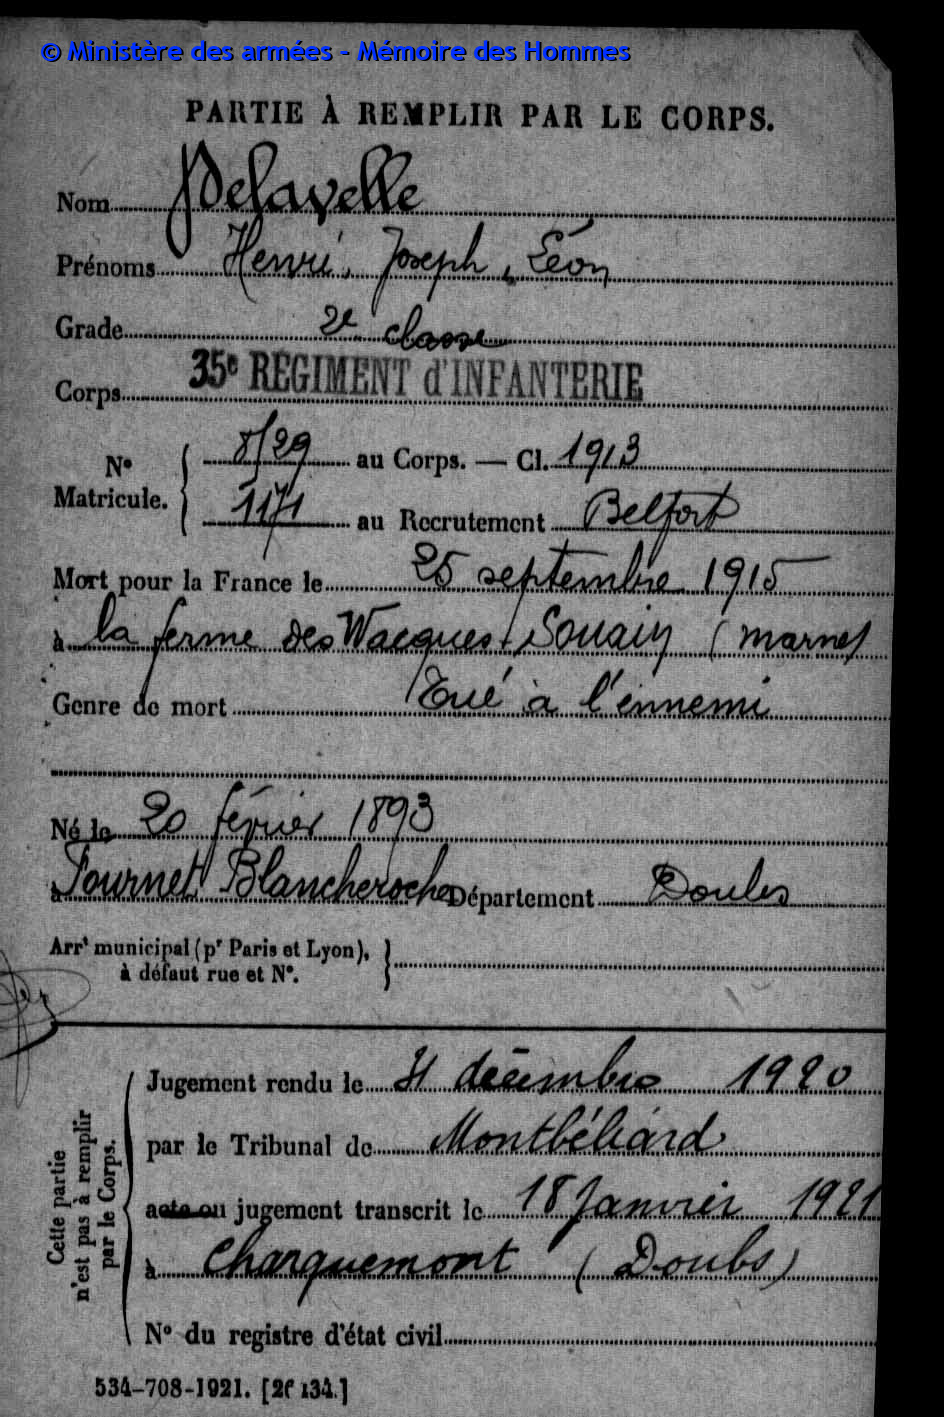 © Ministère des armées - Mémoire des Hommes
PARTIE À REMPLIR PAR LE CORPS.
Nom Delavelle
Prénoms Henri, Joseph, Léon
Grade 2e classe
Corps 35e RÉGIMENT d'INFANTERIE
No Matricule. { 8129 au Corps. — Cl. 1913
1171 au Recrutement Belfort
Mort pour la France le 25 septembre 1915
à la ferme des Wacques - Souain (Marne)
Genre de mort Tué à l'ennemi
Né le 20 février 1893
à Fournet Blancheroche Département Doubs
Arrt municipal (pr Paris et Lyon), à défaut rue et No. }
Cette partie n'est pas à remplir par le Corps.
Jugement rendu le décembre 1920
par le Tribunal de Montbéliard
acte ou jugement transcrit le 18 Janvier 1921
à Charquemont (Doubs)
No du registre d'état civil
534-708-1921. [26434.]